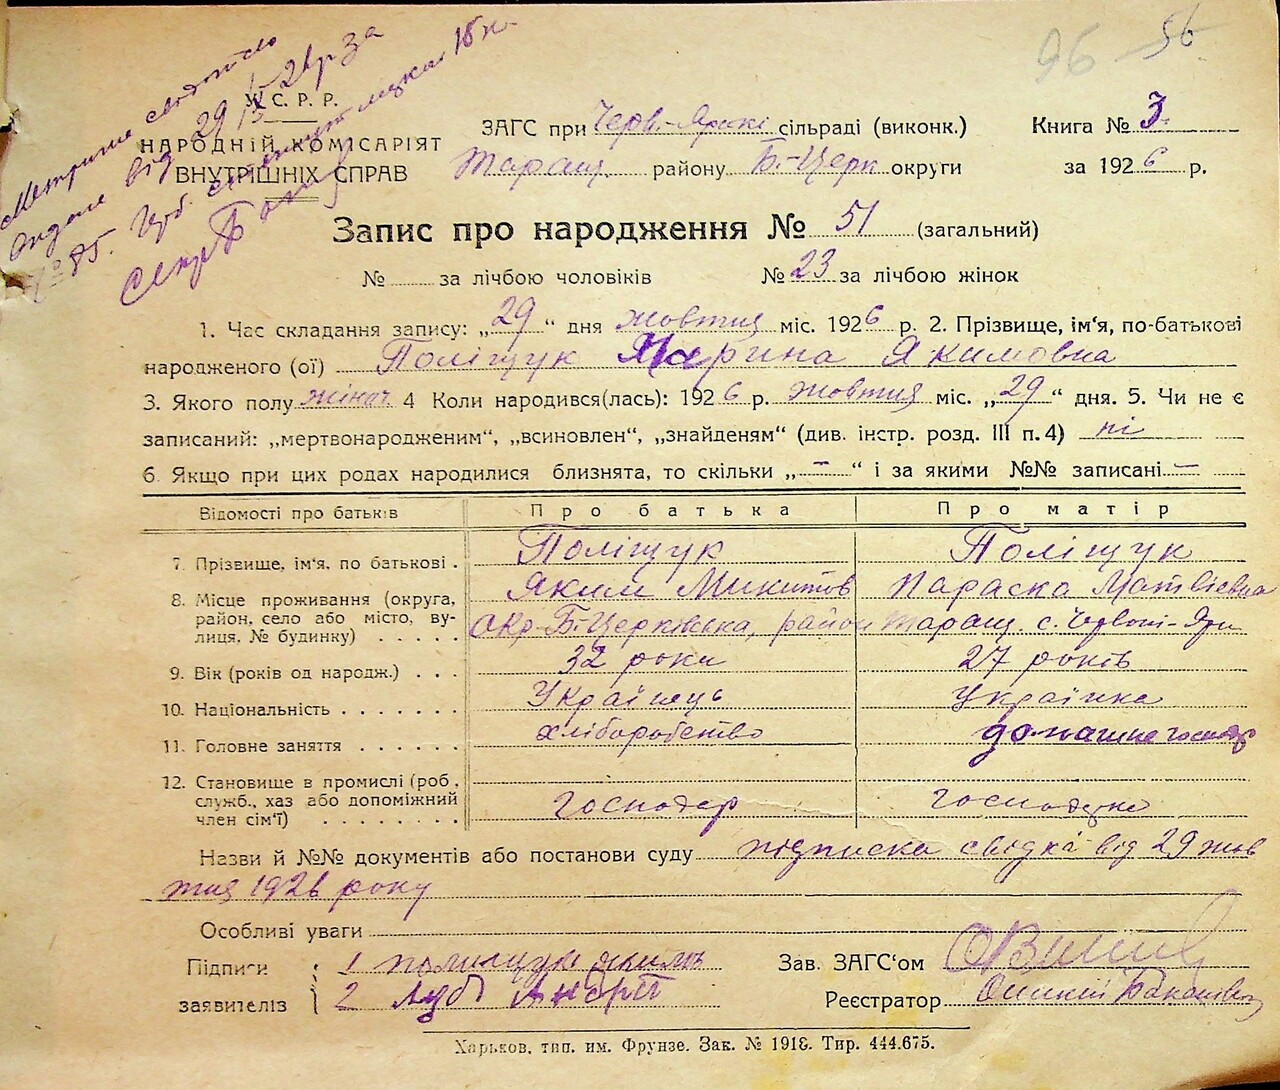 96 - 56
Метричне свідоцтво
видане від 29/
№ 85.
У.С.Р.Р.
НАРОДНІЙ КОМІСАРІЯТ
ВНУТРІШНІХ СПРАВ
ЗАГС при Черв.-Ярскі сільраді (виконк.) Книга № 3.
Таращ. району Б.-Церк округи за 1926 р.
Запис про народження № 51 (загальний)
№ за лічбою чоловіків № 23 за лічбою жінок
1. Час складання запису: „29“ дня жовтня міс. 1926 р. 2. Прізвище, ім'я, по-батькові
народженого (ої) Поліщук Марина Якимовна
3. Якого полу жіноч. 4 Коли народився(лась): 1926 р. жовтня міс. „29“ дня. 5. Чи не є
записаний: „мертвонародженим“, „всиновлен“, „знайденям“ (див. інстр. розд. III п. 4) ні
6. Якщо при цих родах народилися близнята, то скільки „-“ і за якими №№ записані -
Відомості про батьків Про батька Про матір
7. Прізвище, ім'я, по батькові . Поліщук Поліщук
Яким Микитов Параска Матвієвна
8. Місце проживання (округа,
район, село або місто, ву-
лиця, № будинку) . . . . . Окр. Б-Церківська, район Таращ. с. Червоні-Яри
9. Вік (років од народж.) . . . 32 роки 27 років
10. Національність . . . . . . . Українець Українка
11. Головне заняття . . . . . . хліборобство домашне господар
12. Становище в промислі (роб.,
служб., хаз або допоміжний
член сім'ї) . . . . . . . . Господар господарка
Назви й №№ документів або постанови суду підписка свідка від 29 жов
тня 1926 року
Особливі уваги
Підписи 1 Полищук Яким
заявителів 2 Андрій
Зав. ЗАГС'ом
Реєстратор
Харьков, тип. им. Фрунзе. Зак. № 1918. Тир. 444.675.